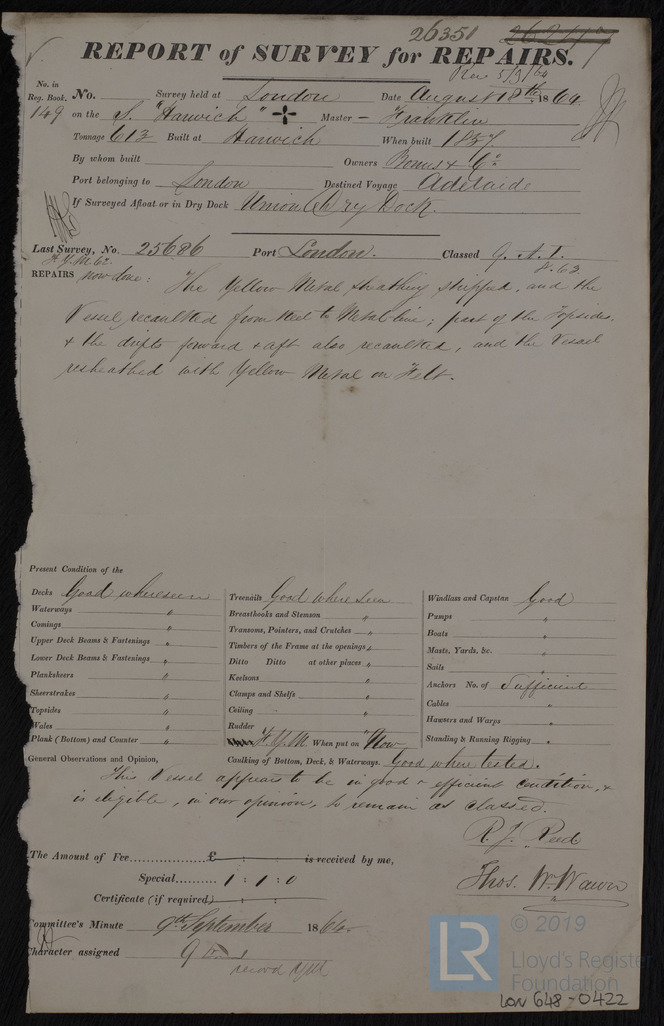 26351
REPORT of SURVEY for REPAIRS.
Rec 5/9/64
No. in Reg. Book. No. Survey held at London Date August 18th 1864
149 on the S. "Harwich" Master - Franklin
Tonnage 613 Built at Harwich When built 1857
By whom built Owners Bonus & Co
Port belonging to London Destined Voyage Adelaide
If Surveyed Afloat or in Dry Dock Union Dry Dock.
Last Survey, No. 25686 Port London. Classed 9. A.1.
F.Y.M 62 8.62
REPAIRS now done: The Yellow Metal sheathing stripped, and the
Vessel recaulked from Keel to Metal line; part of the Topsides,
& the drifts forward & aft also recaulked, and the Vessel
resheathed with Yellow Metal on Felt.
Present Condition of the
Decks Good where seen
Waterways "
Comings "
Upper Deck Beams & Fastenings "
Lower Deck Beams & Fastenings "
Planksheers "
Sheerstrakes "
Topsides "
Wales "
Plank (Bottom) and Counter "
Treenails Good where seen
Breasthooks and Stemson "
Transoms, Pointers, and Crutches "
Timbers of the Frame at the openings "
Ditto Ditto at other places "
Keelsons "
Clamps and Shelfs "
Ceiling "
Rudder "
F.Y.M When put on Now
Windlass and Capstan Good
Pumps "
Boats "
Masts, Yards, &c. "
Sails "
Anchors No. of Sufficient
Cables "
Hawsers and Warps "
Standing & Running Rigging "
General Observations and Opinion, Caulking of Bottom, Deck, & Waterways Good where tested.
This Vessel appears to be in good & efficient condition, &
is eligible, in our opinion, to remain as classed.
R. J. Reed
The Amount of Fee £ : : is received by me,
Special 1 : 1 : 0
Thos. Wm
Certificate (if required) : :
Committee's Minute 9th September 1864
Character assigned 9
record
© 2019
LR
Lloyd's Register
Foundation
LON 648-0422